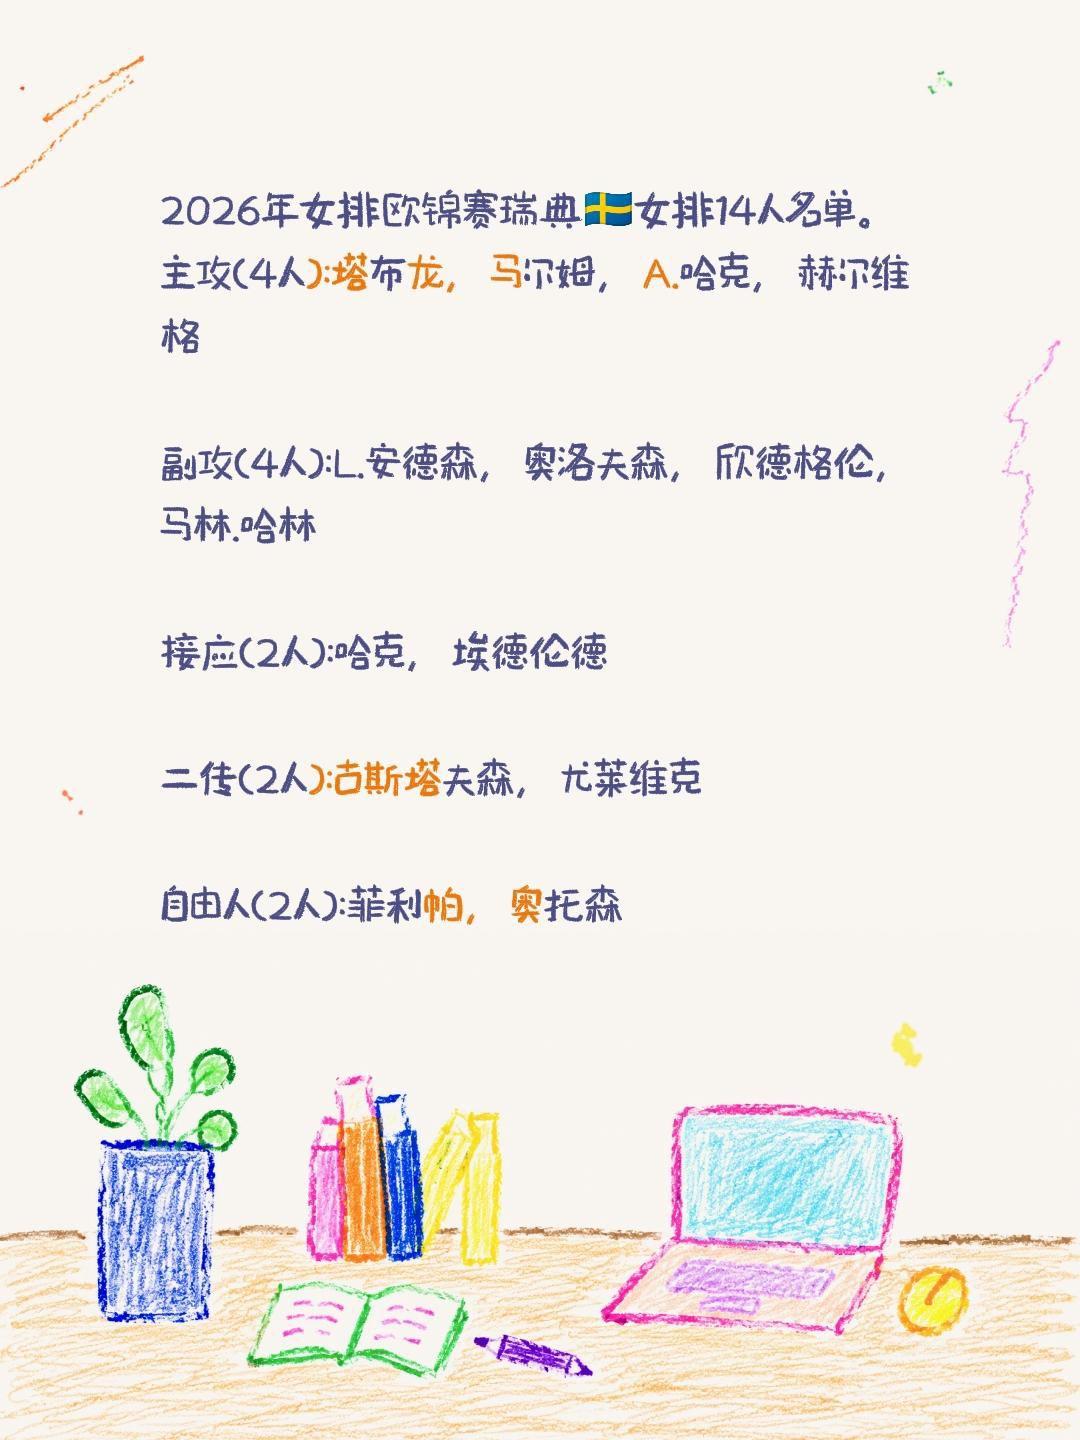 2026年女排欧锦赛瑞典🇸🇪女排14人名单。
主攻(4人):塔布龙, 马尔姆, A.哈克, 赫尔维
格
副攻(4人):L.安德森, 奥洛夫森, 欣德格伦,
马林.哈林
接应(2人):哈克, 埃德伦德
二传(2人):古斯塔夫森, 尤莱维克
自由人(2人):菲利帕, 奥托森